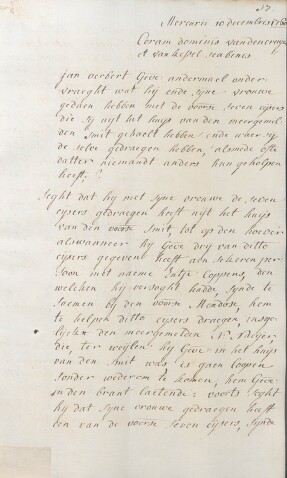 17.
Mercurii 10 decembris 176
Coram dominis vanden
et van hessel scabinis
jan gerbert Gève andermael onder
vraeght wat hij ende syne vrouwe
gedaen hebben met de voors. seven eysers
die sy uijt het huys van den meergemel
den smit gehaelt hebben ende waer sy
de selve gedraegen hebben, alsmede ofte
datter niemandt anders hun geholpen
heeft?
Seght dat hij met syne vrouwe de seven
eysers gedraegen heeft uijt het huys
van den voors. Smit, tot op den
alswanneer hij Gève dry van ditto
eysers gegeven heeft aen sekeren per
soon met naeme Coppens, den
welcken hij versoght hadde, synde te
saemen bij den voorn. hem
te helpen ditto eysers draegen, insge
lyckx den meergemelden N.
die, terwylen hij Gève in het huys
van den smit was is gaen loopen
sonder wederom te komen, hem Gève
in den brant laetende: voorts seght
hij dat syne vrouwe gedraegen heeft
een van de voors. seven eysers, synde